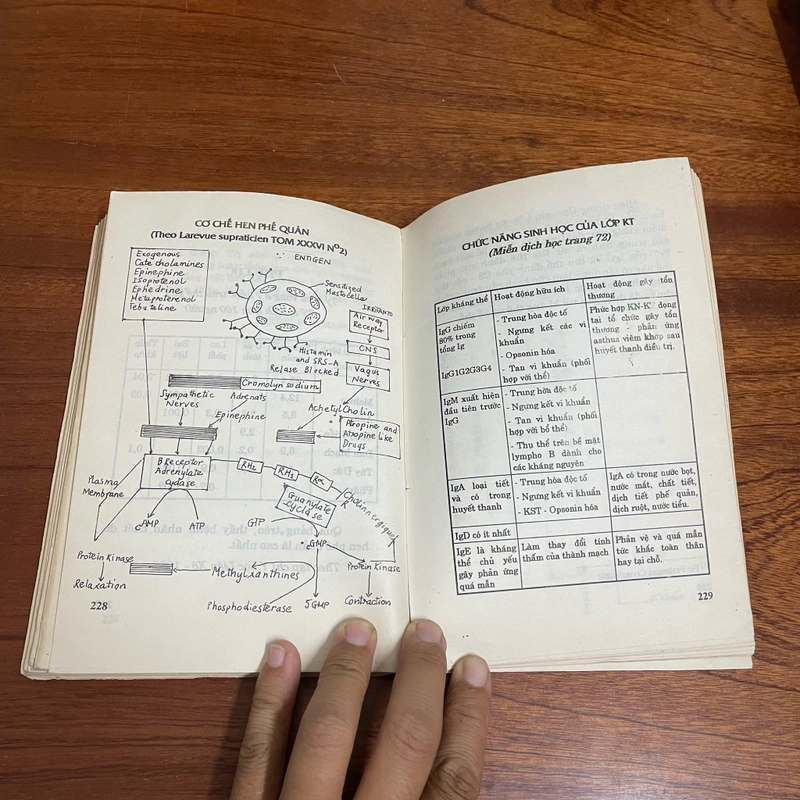 CƠ CHẾ HEN PHẾ QUẢN
(Theo Larevue supraticien TOM XXXVI Nº2)
ENTIGEN
Exogenous
Cate cholamines
Epinephine
Isopotenol
Ephedrine
Metapoterenol
Tebutaline
Sensitiged
Mastocella
IRRITANTO
Air way
Receptor
CNS
Vagus
Nerves
Histamin
and SRS-A
Relase Blocked
Cromolyn sodium
Sympathetic
Nerves
Adrenats
Epinephine
AchetylCholin
Atropine and
Atropine like
Drugs
B Receptor
Adrenylate
cyclase
Plasma
Membrane
RH2
RH1
Guanylate
-cyclase
cAMP
ATP
GTP
cGMP
Protein Kinase
Relaxation
Methylxanthines
Protein Kinase
Phosphodiesterase
5'GMP
Contraction
228
CHỨC NĂNG SINH HỌC CỦA LỚP KT
(Miễn dịch học trang 72)
Lớp kháng thể
Hoạt động hữu ích
Hoạt động gây tổn
thương
IgG chiếm
80% trong
tổng Ig
IgG1G2G3G4
- Trung hòa độc tố
- Ngưng kết các vi
khuẩn
- Opsonin hóa
- Tan vi khuẩn (phối
hợp với thể)
Phức hợp KN-K' đọng
tại tổ chức gây tổn
thương - phản ứng
asthus viêm khớp sau
huyết thanh điều trị.
IgM xuất hiện
đầu tiên trước
IgG
- Trung hừa độc tố
- Ngưng kết vi khuẩn
- Tan vi khuẩn (phối
hợp với bổ thể)
- Thu thể trên bề mặt
lympho B dành cho
các kháng nguyên
IgA loại tiết
và có trong
huyết thanh
- Trung hòa độc tố
- Ngưng kết vi khuẩn
- KST - Opsonin hóa
IgA có trong nước bọt,
nước mắt, chất tiết,
dịch tiết phế quản,
dịch ruột, nước tiểu.
IgD có ít nhất
IgE là kháng
thể chủ yếu
gây phản ứng
quá mẫn
Làm thay đổi tính
thấm của thành mạch
Phản vệ và quá mẫn
tức khắc toàn thân
hay tại chỗ.
229